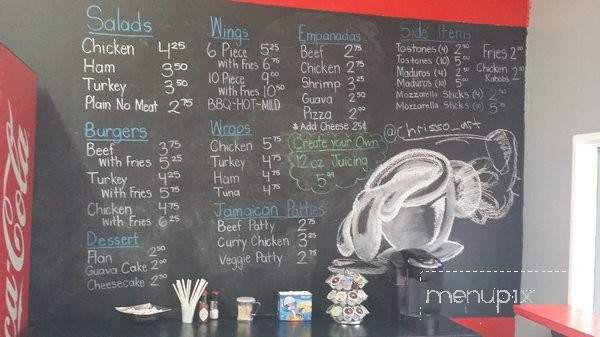 Salads
Chicken 4.25
Ham 3.50
Turkey 3.50
Plain No Meat 2.75
Burgers
Beef 3.75
with Fries 5.25
Turkey 4.25
with Fries 5.75
Chicken 4.75
with Fries 6.25
Dessert
Flan 2.50
Guava Cake 2.00
Cheesecake 2.50
Wings
6 Piece 5.25
with Fries 6.75
10 Piece 9.00
with Fries 10.50
BBQ-HOT-MILD
Wraps
Chicken 5.75
Turkey 4.75
Ham 4.75
Tuna 4.75
Jamaican Patties
Beef Patty 2.75
Curry Chicken 3.25
Veggie Patty 2.75
Empanadas
Beef 2.75
Chicken 2.75
Shrimp 3.25
Guava 2.50
Pizza 2.00
*Add Cheese 25¢
Create your Own
12 oz Juicing
5.99
Side Items
Tostones (4) 2.50
Tostones (10) 5.00
Maduros (4) 2.50
Maduros (10) 5.00
Mozzarella Sticks (4) 2.50
Mozzarella Sticks (10) 5.75
Fries 2.00
Chicken 2.50
Kabobs
@chrisso_art
Coca-Cola
menupix